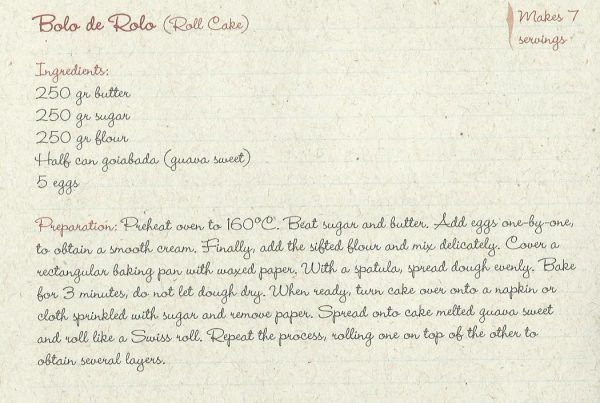 Bolo de Rolo (Roll Cake)
Makes 7
servings
Ingredients:
250 gr butter
250 gr sugar
250 gr flour
Half can goiabada (guava sweet)
5 eggs
Preparation: Preheat oven to 160°C. Beat sugar and butter. Add eggs one-by-one,
to obtain a smooth cream. Finally, add the sifted flour and mix delicately. Cover a
rectangular baking pan with waxed paper. With a spatula, spread dough evenly. Bake
for 3 minutes, do not let dough dry. When ready, turn cake over onto a napkin or
cloth sprinkled with sugar and remove paper. Spread onto cake melted guava sweet
and roll like a Swiss roll. Repeat the process, rolling one on top of the other to
obtain several layers.